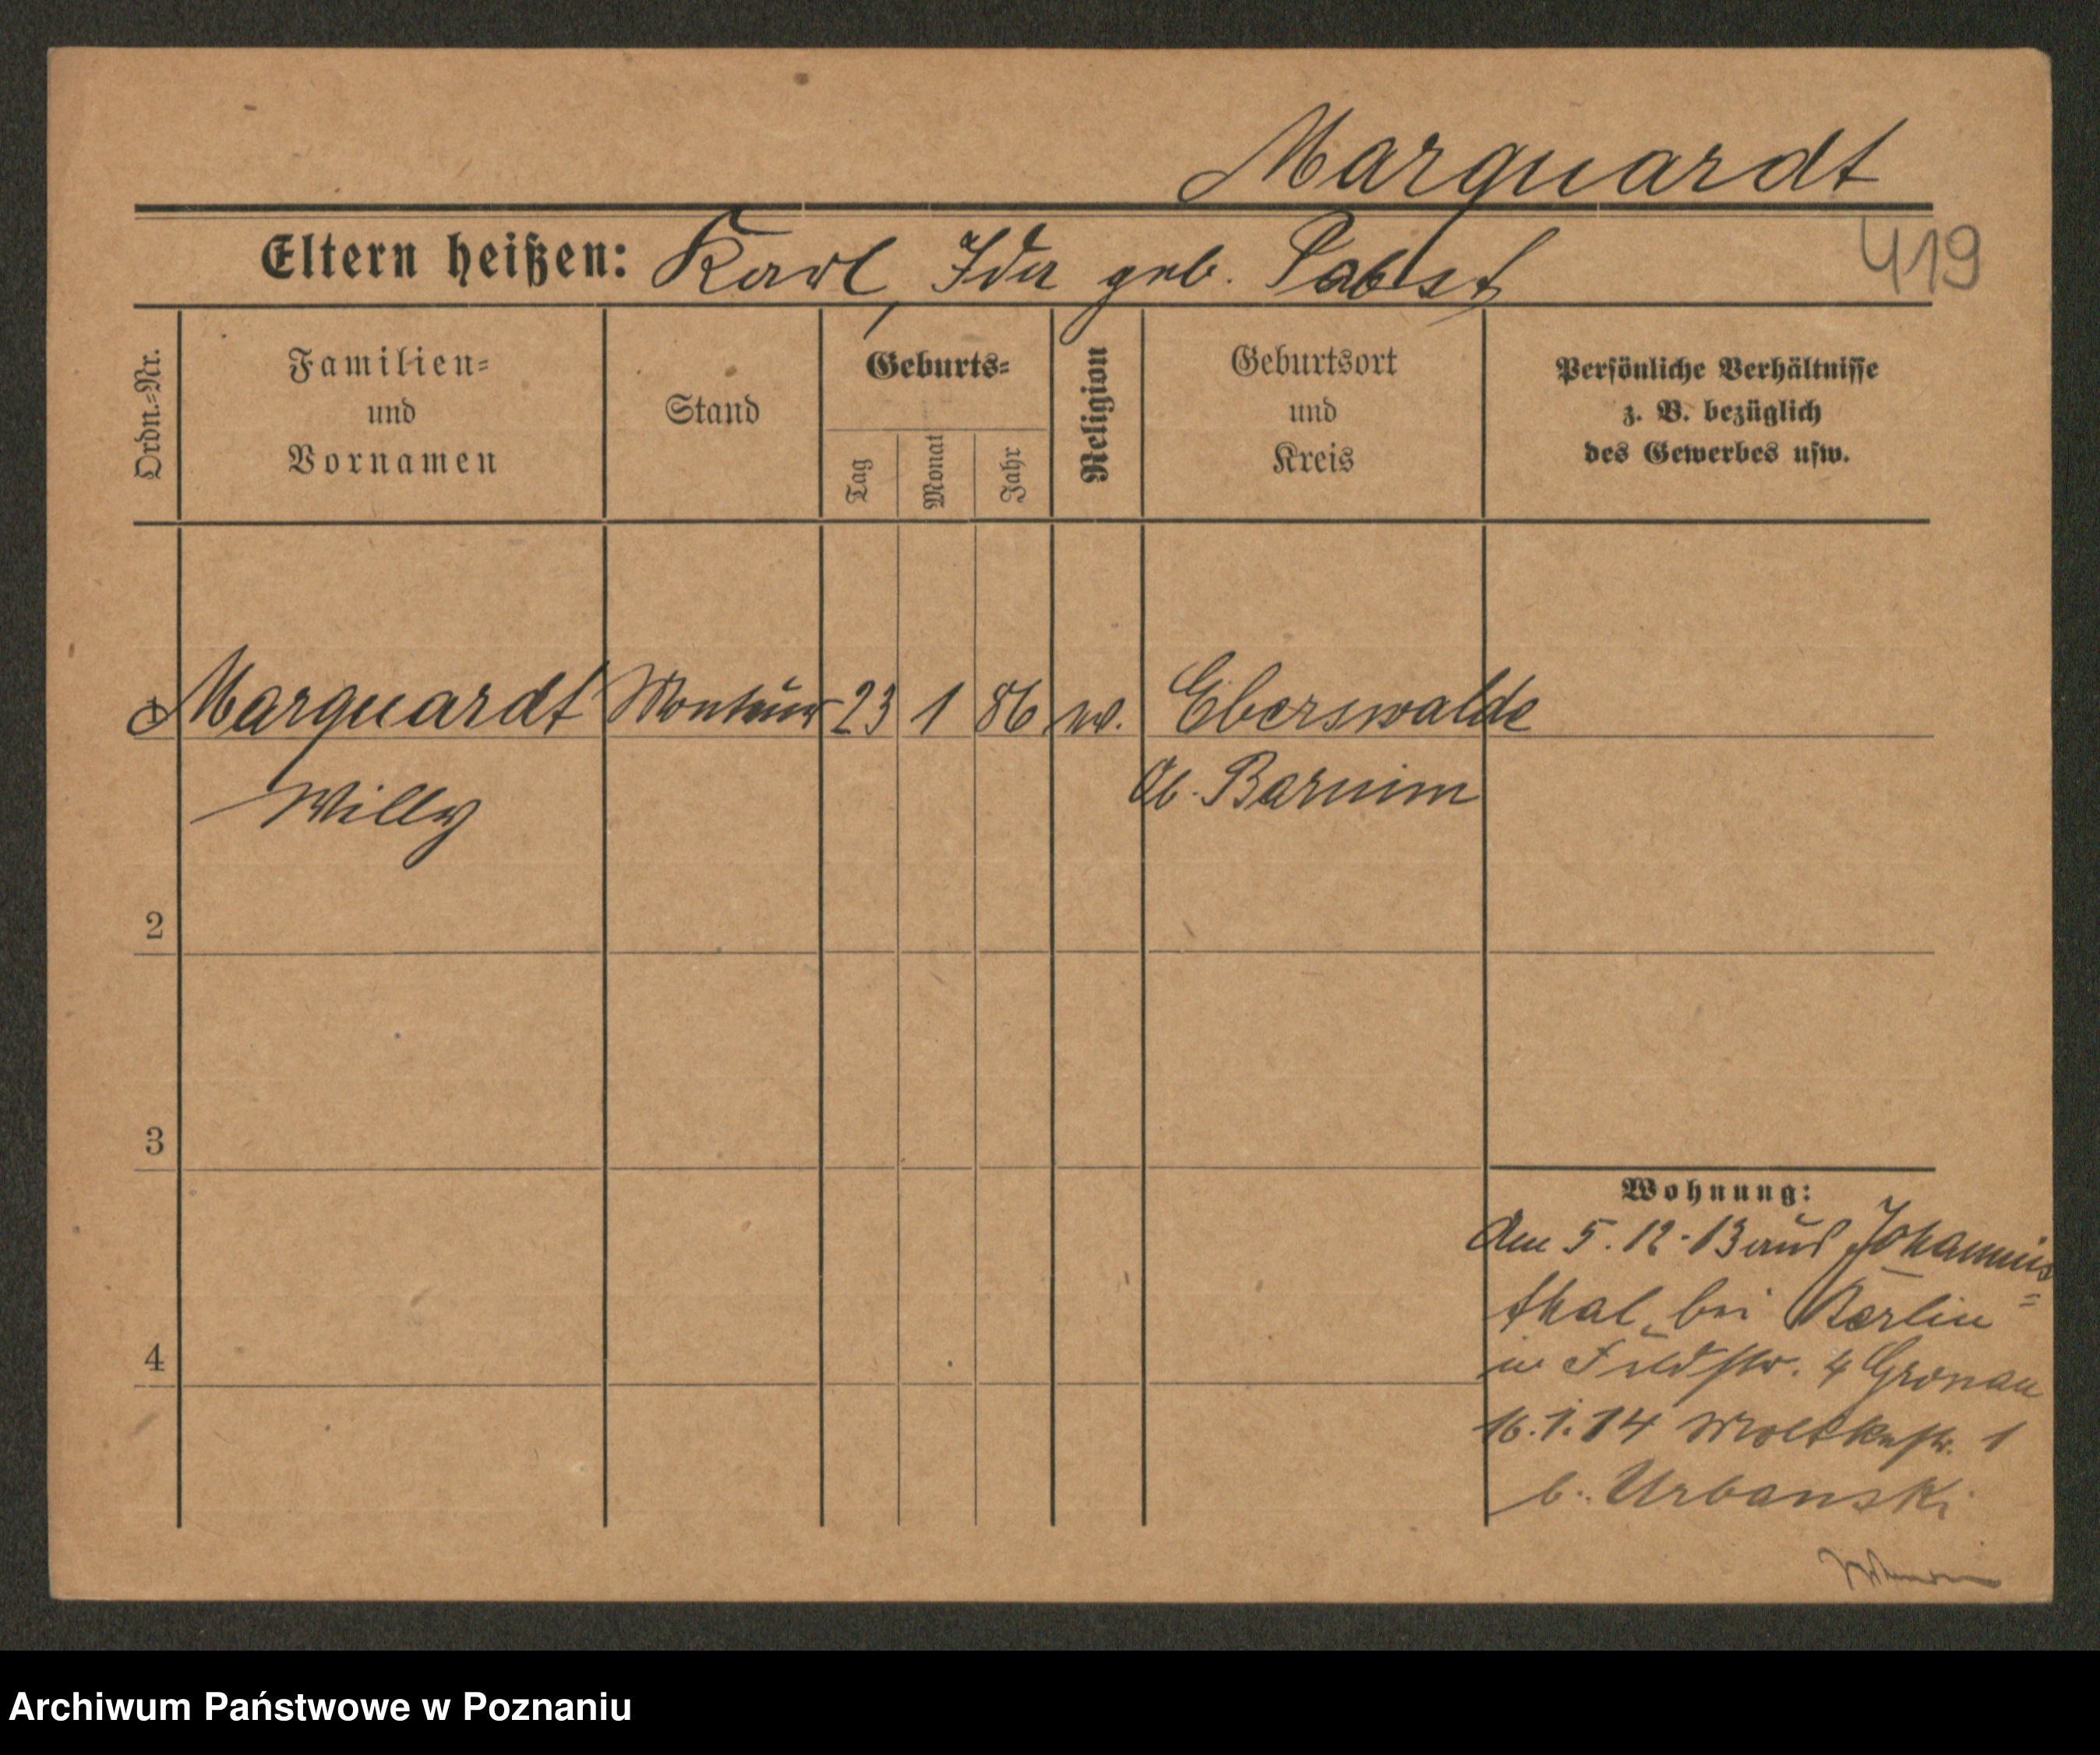 Marquardt
Eltern heißen: Karl, Ida geb. Pabst
419
Ordn.-Nr.
Familien-
und
Vornamen
Stand
Geburts-
Tag
Monat
Jahr
Religion
Geburtsort
und
Kreis
Persönliche Verhältnisse
z. B. bezüglich
des Gewerbes usw.
1 Marquardt Monteur 23 1 86 ev. Eberswalde
Willy Ob. Barnim
2
3
4
Wohnung:
Am 5.12.13 aus Johannis
thal bei Berlin
in Feldstr. 4 Gronau
16.1.14 Moltkestr. 1
b. Urbanski
Archiwum Państwowe w Poznaniu